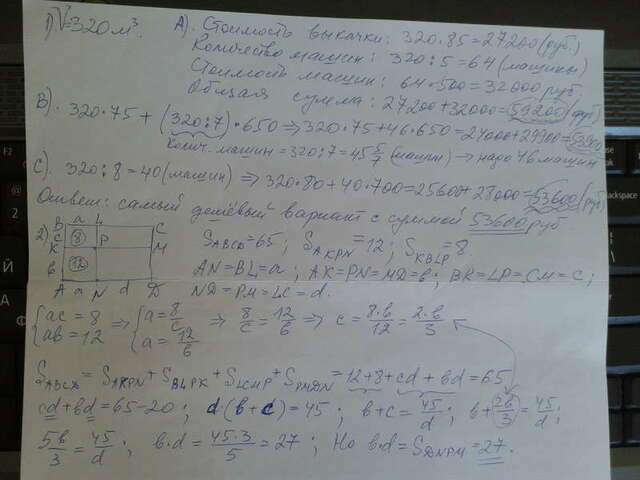 1) V=320 м³. A). Стоимость выкачки: 320·85=27200 (руб.)
Количество машин: 320:5=64 (машины)
Стоимость машин: 64·500=32000 руб.
Общая сумма: 27200+32000=59200 (руб)
B). 320·75+(320:7)·650⇒320·75+46·650=24000+29900=53900
колич. машин=320:7=45 5/7 (машин)→надо 46 машин
C). 320:8=40 (машин) ⇒ 320·80+40·700=25600+28000=53600 (руб)
Ответ: самый дешёвый вариант с суммой 53600 руб.
2) B a L C
c 8 P
K M
b 12
A a N d D
S_ABCD=65; S_AKPN=12; S_KBLP=8.
AN=BL=a; AK=PN=MD=b; BK=LP=CM=c;
ND=PM=LC=d.
{ac=8 ab=12 ⇒ {a=8/c a=12/b ⇒ 8/c=12/b ⇒ c=8·b/12=2·b/3
S_ABCD=S_AKPN+S_BLPK+S_LCMP+S_PMDN=12+8+cd+bd=65
cd+bd=65-20; d(b+c)=45; b+c=45/d; b+2b/3=45/d;
5b/3=45/d; b·d=45·3/5=27; Но b·d=S_DNPM=27.